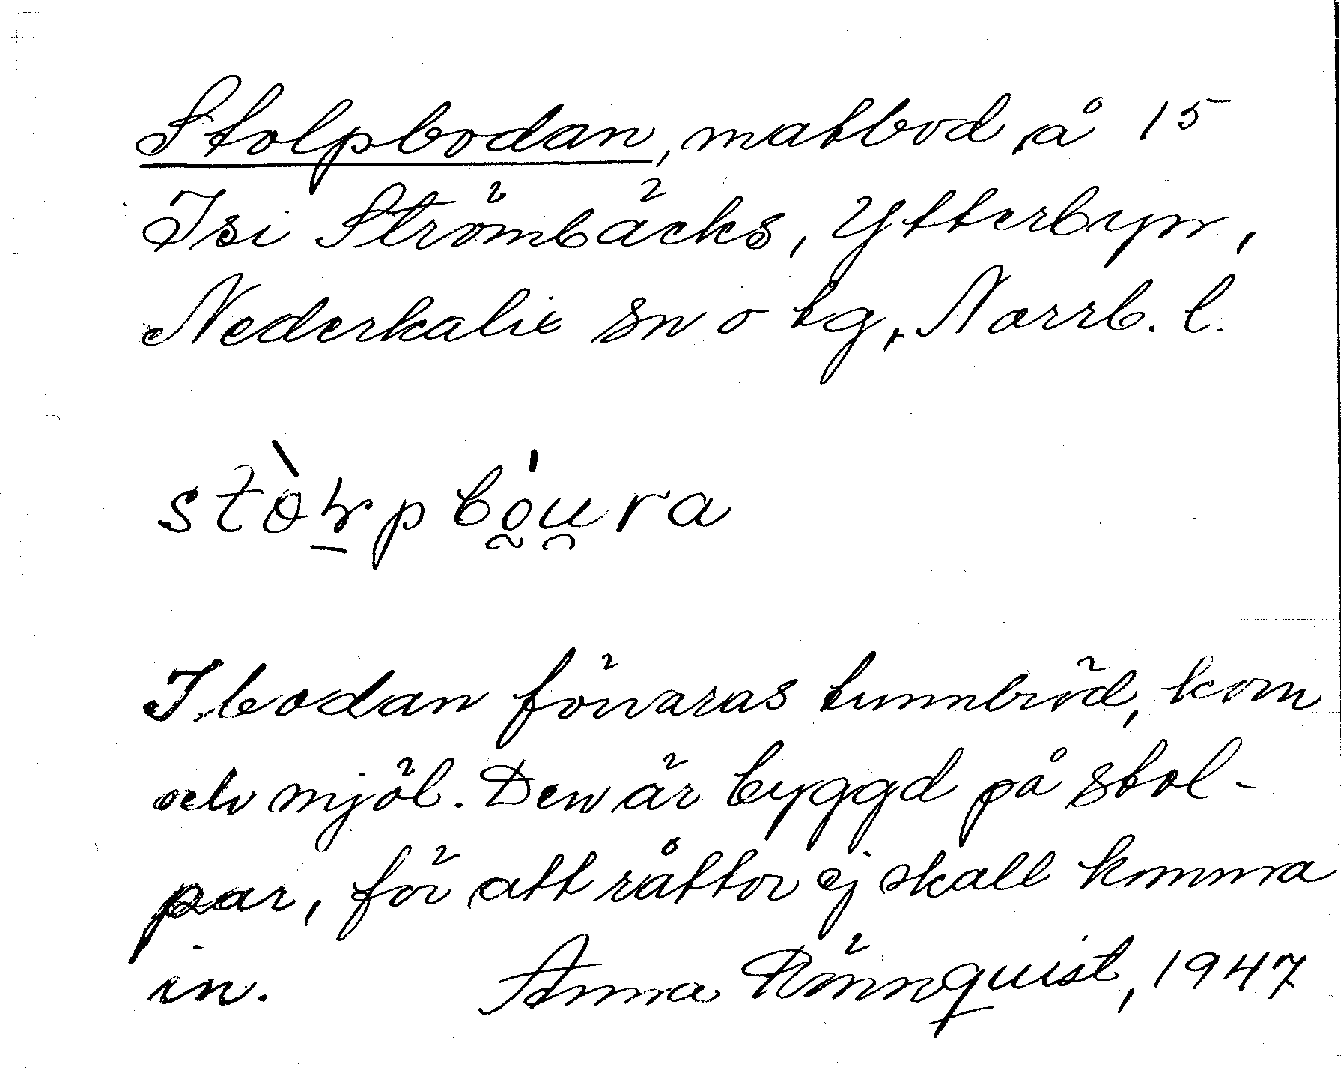 Stolpbodan, matbod å 15
Isi Strömbäcks, Ytterbyn,
Nederkalix sn o tg, Norrb. l.
I bodan förvaras tunnbröd, korn
och mjöl. Den är byggd på stol-
par, för att råttor ej skall komma
in. Anna Rönnquist, 1947